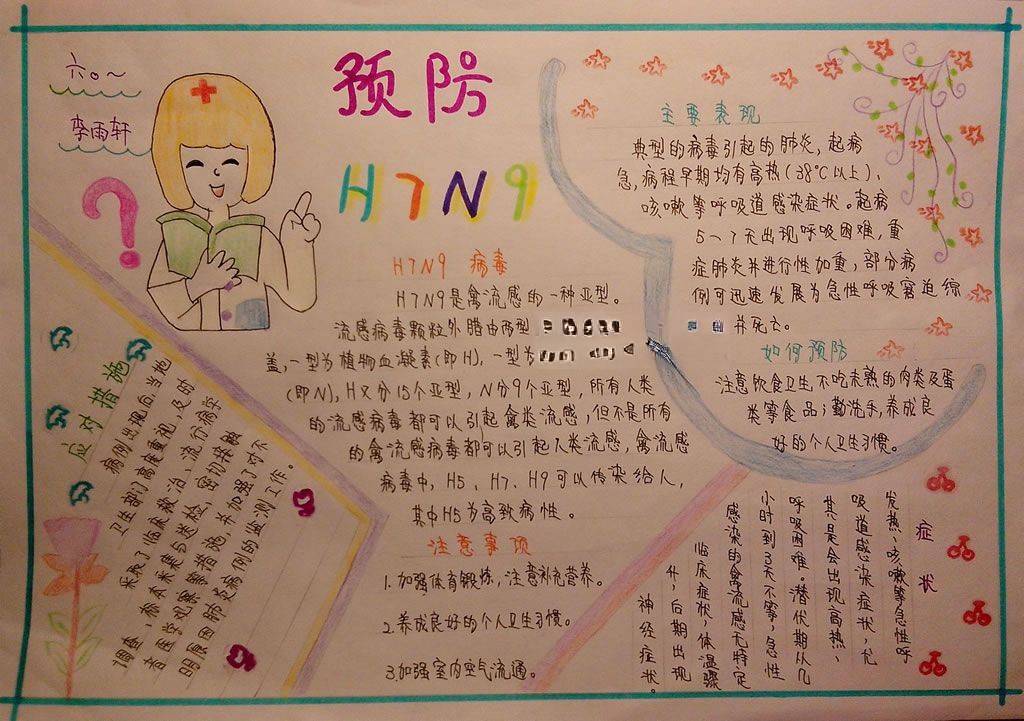 六〇~
李雨轩
?
预防
H7N9
H7N9 病毒
H7N9是禽流感的一种亚型。
流感病毒颗粒外膜由两型
盖,一型为植物血凝素(即H),一型为
(即N),H又分15个亚型,N分9个亚型,所有人类
的流感病毒都可以引起禽类流感,但不是所有
的禽流感病毒都可以引起人类流感,禽流感
病毒中,H5、H7、H9可以传染给人,
其中H5为高致病性。
注意事项
1.加强体育锻炼,注意补充营养。
2.养成良好的个人卫生习惯。
3.加强室内空气流通。
主要表现
典型的病毒引起的肺炎,起病
急,病程早期均有高热(38℃以上)、
咳嗽等呼吸道感染症状。起病
5-7天出现呼吸困难,重
症肺炎并进行性加重,部分病
例可迅速发展为急性呼吸窘迫综
并死亡。
如何预防
注意饮食卫生,不吃未熟的肉类及蛋
类等食品;勤洗手,养成良
好的个人卫生习惯。
应对措施
病例出现后,当地
卫生部门高度重视,及时
采展了临床救治、流行病学
调查、标本采集与送检,密切接触
者医学观察等措施,并加强了对不
明原因肺炎病例的监测工作。
症状
发热、咳嗽等急性呼
吸道感染症状,尤
其是会出现高热、
呼吸困难。潜伏期从几
小时到3天不等,急性
感染的禽流感无特定
临床症状,体温骤
升,后期出现
神经症状。